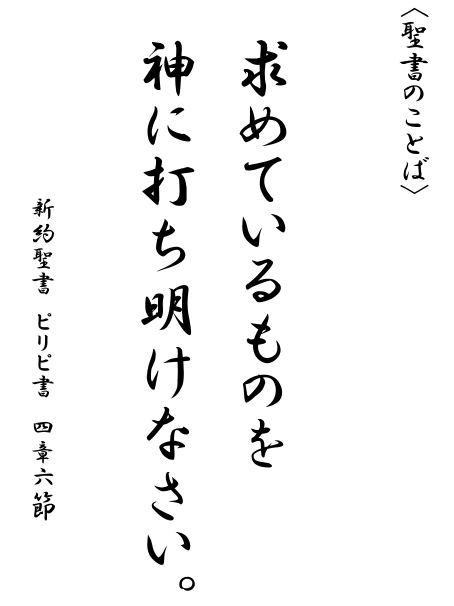 〈聖書のことば〉
求めているものを
神に打ち明けなさい。
新約聖書 ピリピ書 四章六節